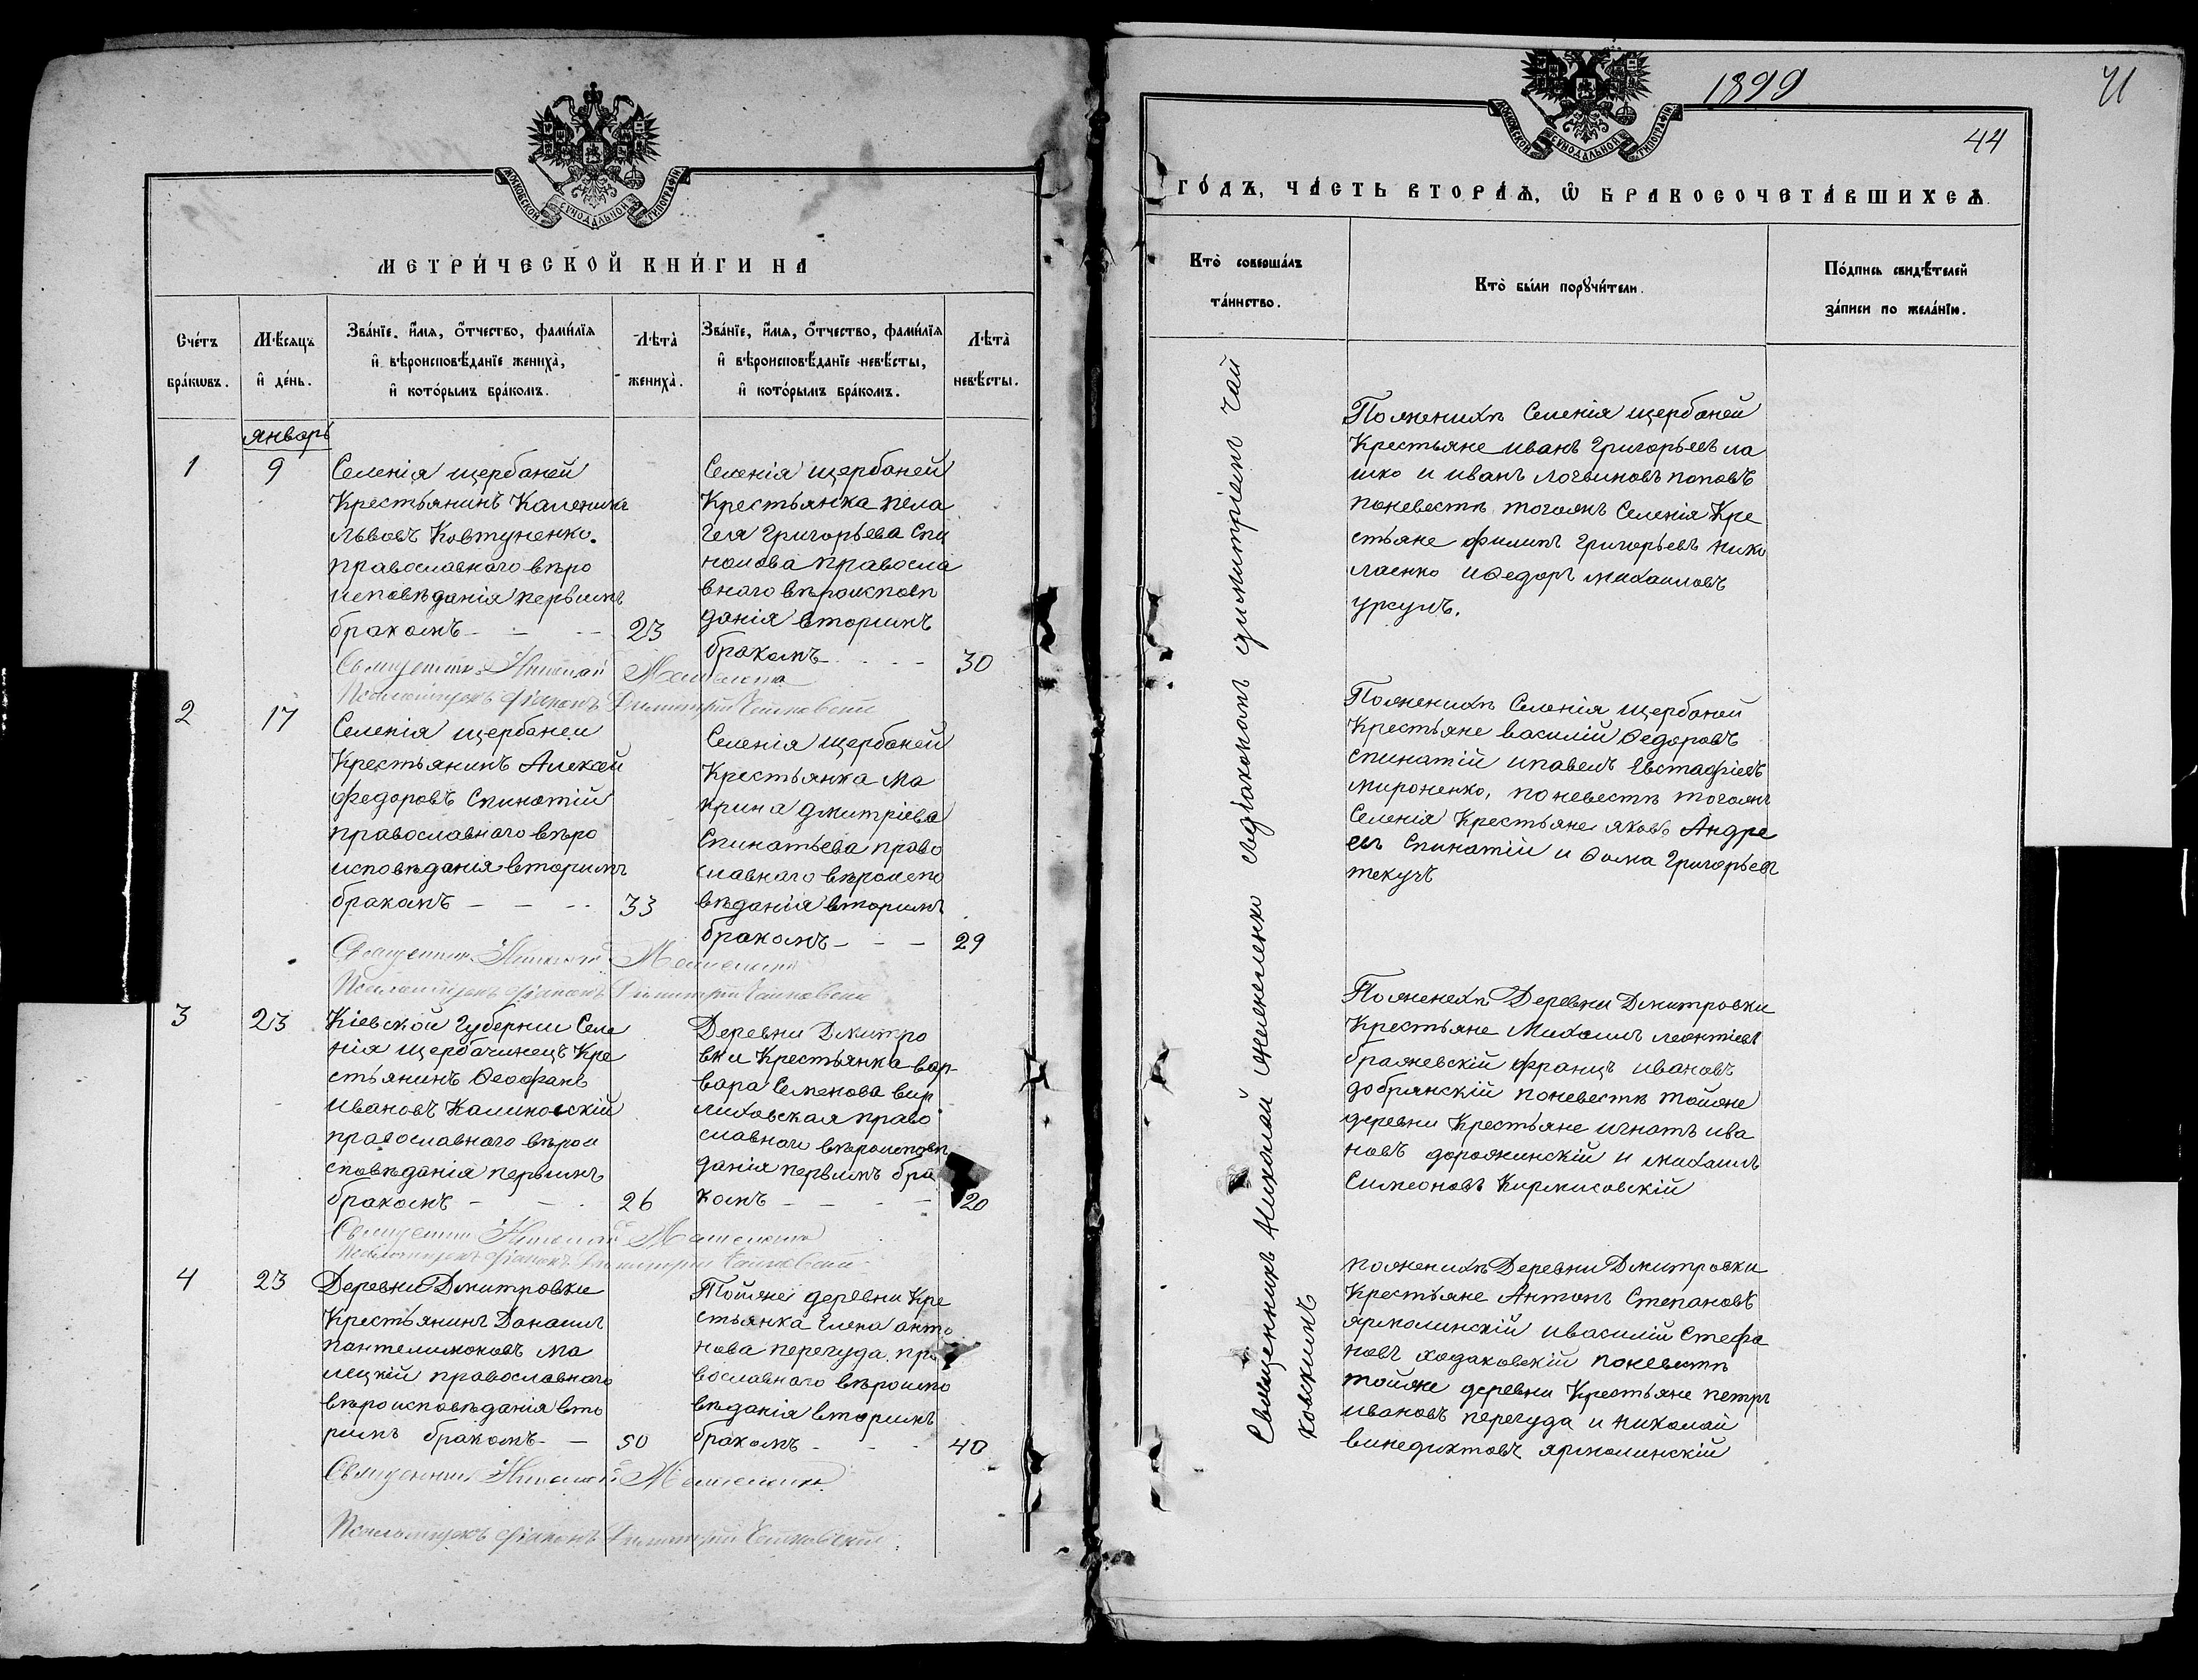 МОСКОВСКОЙ СУНОДАЛЬНОЙ ТИПОГРАФІИ
МЕТРИ́ЧЕСКОЙ КНИ́ГИ НА
Сче́тъ бра́кωвъ.
Мѣ́сяцъ и҆ де́нь.
Зва́нїе, и҆́мя, ѻ҆́тчество, фами́лїя
и҆ вѣроисповѣ́данїе жениха̀,
и҆ кото́рымъ бра́комъ.
Лѣта̀ жениха̀.
Зва́нїе, и҆́мя, ѻ҆́тчество, фами́лїя
и҆ вѣроисповѣ́данїе невѣ́сты,
и҆ кото́рымъ бра́комъ.
Лѣта̀ невѣ́сты.
январь
1
9
Селенія щербаней
Крестьянинъ Каленикъ
Львовъ Ковтуненко.
православнаго вѣро
исповѣданія первымъ
бракомъ - - -
23
Селенія щербаней
Крестьянка пела
гея Григорьева Спи
православ
внаго вѣроисповѣ
данія вторымъ
бракомъ - - -
30
Священникъ Николай
Псаломщикъ діаконъ Димитрій Чайковскій
2
17
Селенія щербаней
Крестьянинъ Алексей
Федоровъ Спинатій
православнаго вѣро
исповѣданія вторымъ
бракомъ - - -
33
Селенія щербаней
Крестьянка Ма
крина дмитріева
Спинатьева право
славнаго вѣроиспо
вѣданія вторымъ
бракомъ - - -
29
Священникъ Николай
Псаломщикъ діаконъ Димитрій Чайковскій
3
23
Кіевской Губерніи Селе
нія щербачинецъ Кре
стьянинъ Ѳеофанъ
Ивановъ Калиновскій
православнаго вѣрои
сповѣданія первымъ
бракомъ - - -
26
Деревни Дмитро
вки Крестьянка вар
вара Семенова вир
лиховская право
славнаго вѣроисповѣ
данія первымъ бра
комъ - - -
20
Священникъ Николай
Псаломщикъ діаконъ Димитрій Чайковскій
4
23
Деревни Дмитровки
Крестьянинъ Данаилъ
пантелимоновъ Ма
лецкій православнаго
вѣроисповѣданія вто
рымъ бракомъ - -
50
Тойже деревни Кре
стьянка Елена анто
нова перегуда пра
вославнаго вѣроиспо
вѣданія вторымъ
бракомъ - - -
40
Священникъ Николай
Псаломщикъ діаконъ Димитрій Чайковскій
МОСКОВСКОЙ СУНОДАЛЬНОЙ ТИПОГРАФІИ
1899
44
ГО́ДЪ, ЧА́СТЬ ВТОРА́Ѧ, Ѽ БРАКОСОЧЕТА́ВШИХСѦ.
Кто̀ соверша́лъ
та́инство.
Кто̀ бы́ли порꙋчи́тели.
По́дпись свидѣ́телей
за́писи по жела́нїю.
Священникъ Николай сдіакономъ димитріемъ чай
ковскимъ
Поженихѣ Селенія щербаней
Крестьяне иванъ Григорьевъ ла
шко и иванъ логвиновъ поповъ
поневестѣ тогожъ Селенія Кре
стьяне филипъ Григорьевъ нико
лаенко иѲедоръ михаиловъ
урсулъ.
Поженихѣ Селенія щербаней
Крестьяне василій Ѳедоровъ
спинатій ипавелъ Евстафіевъ
мироненко, поневестѣ тогожъ
Селенія Крестьяне яковъ Андре
евъ Спинатіи и Ѳома Григорьевъ
текучъ
Поженехѣ Деревни Дмитровки
Крестьяне Михаилъ леонтіевъ
бражевскій францъ ивановъ
добрянскій поневестѣ тойже
деревни Крестьяне игнатъ ива
новъ дорожинскій и михаилъ
Симеоновъ Кирмисовскій
поженихѣ Деревни Дмитровки
Крестьяне Антонъ Степановъ
ярмолинскій ивасилій Стефа
новъ ходаковскій поневестѣ
тойже деревни Крестьяне петръ
ивановъ перегуда и николай
винедиктовъ ярмолинскій